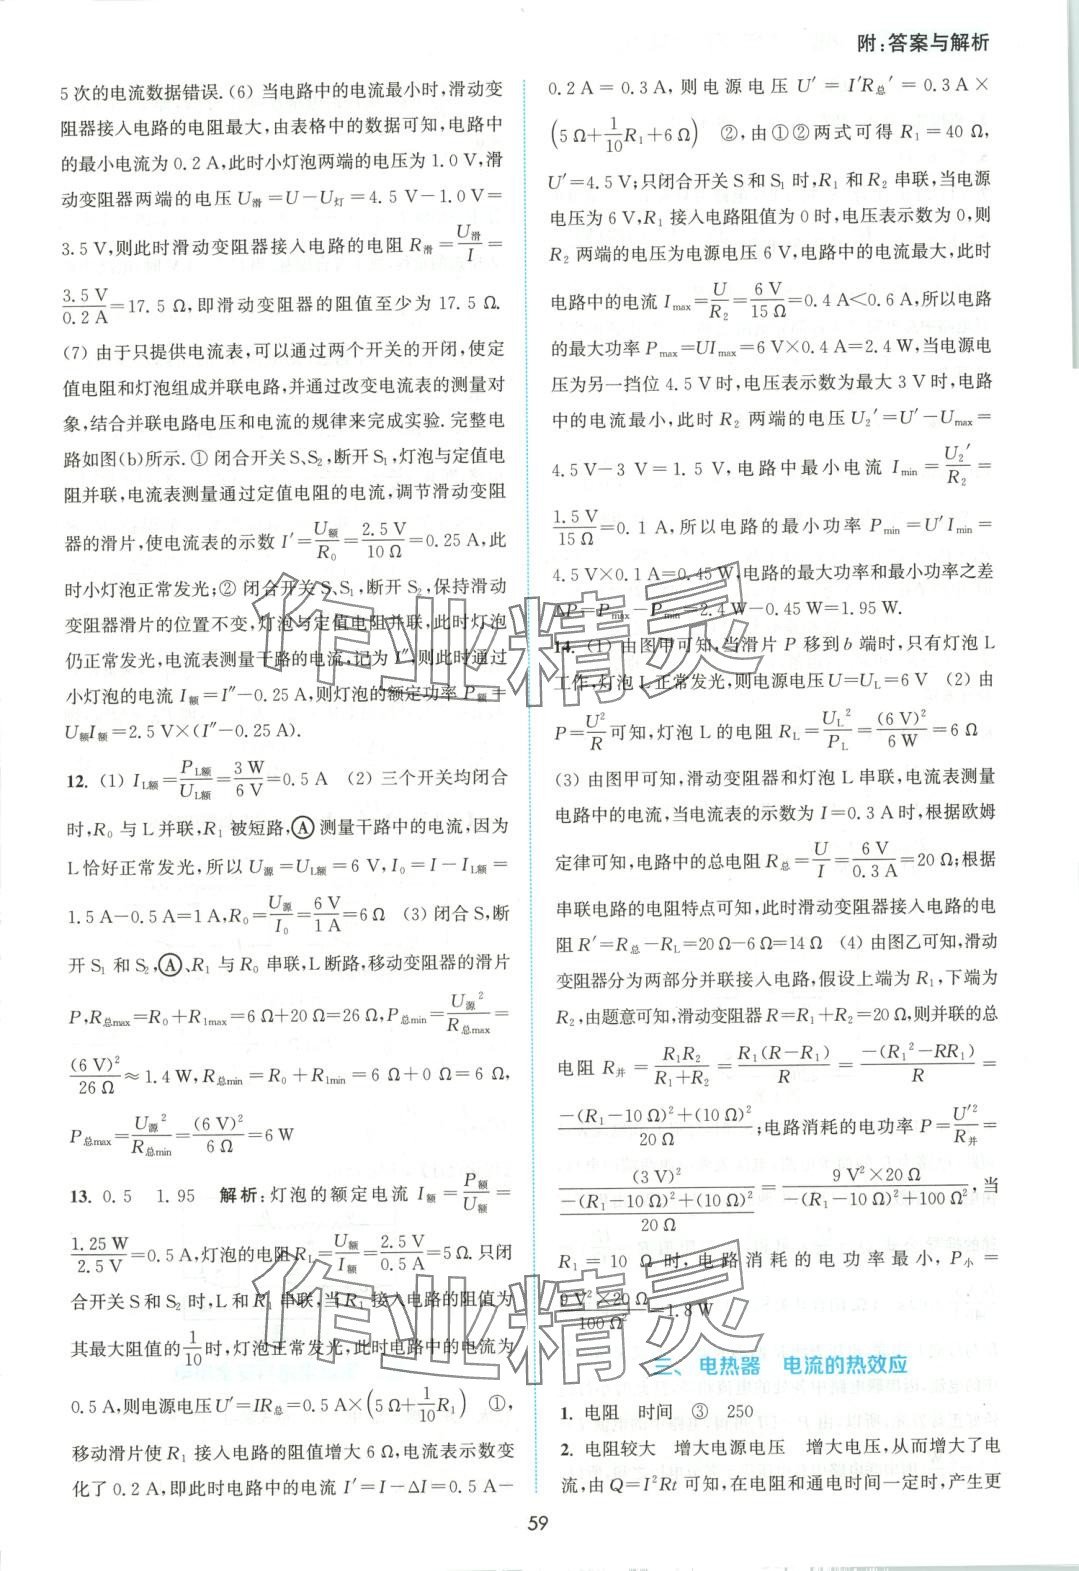 附:答案与解析
5 次的电流数据错误. (6) 当电路中的电流最小时,滑动变
阻器接入电路的电阻最大,由表格中的数据可知,电路中
的最小电流为 0.2 A,此时小灯泡两端的电压为 1.0 V,滑
动变阻器两端的电压 U滑=U-U灯=4.5 V-1.0 V=
3.5 V,则此时滑动变阻器接入电路的电阻 R滑=U滑/I=
3.5 V/0.2 A=17.5 Ω,即滑动变阻器的阻值至少为 17.5 Ω.
(7) 由于只提供电流表,可以通过两个开关的开闭,使定
值电阻和灯泡组成并联电路,并通过改变电流表的测量对
象,结合并联电路电压和电流的规律来完成实验. 完整电
路如图(b)所示. ① 闭合开关 S、S₂,断开 S₁,灯泡与定值电
阻并联,电流表测量通过定值电阻的电流,调节滑动变阻
器的滑片,使电流表的示数 I′=U额/R₀=2.5 V/10 Ω=0.25 A,此
时小灯泡正常发光;② 闭合开关 S、S₁,断开 S₂,保持滑动
变阻器滑片的位置不变,灯泡与定值电阻并联,此时灯泡
仍正常发光,电流表测量干路的电流,记为 I″,则此时通过
小灯泡的电流 I额=I″-0.25 A,则灯泡的额定功率 P额=
U额I额=2.5 V×(I″-0.25 A).
12. (1) I_L额=P_L额/U_L额=3 W/6 V=0.5 A (2) 三个开关均闭合
时,R₀ 与 L 并联,R₁ 被短路,Ⓐ测量干路中的电流,因为
L 恰好正常发光,所以 U源=U_L额=6 V,I₀=I-I_L额=
1.5 A-0.5 A=1 A,R₀=U源/I₀=6 V/1 A=6 Ω (3) 闭合 S,断
开 S₁ 和 S₂,Ⓐ、R₁ 与 R₀ 串联,L 断路,移动变阻器的滑片
P,R总max=R₀+R₁max=6 Ω+20 Ω=26 Ω,P总min=U源²/R总max=
(6 V)²/26 Ω≈1.4 W,R总min=R₀+R₁min=6 Ω+0 Ω=6 Ω,
P总max=U源²/R总min=(6 V)²/6 Ω=6 W
13. 0.5 1.95 解析:灯泡的额定电流 I额=P额/U额=
1.25 W/2.5 V=0.5 A,灯泡的电阻 R_L=U额/I额=2.5 V/0.5 A=5 Ω. 只闭
合开关 S 和 S₂ 时,L 和 R₁ 串联,当 R₁ 接入电路的阻值为
其最大阻值的 1/10 时,灯泡正常发光,此时电路中的电流为
0.5 A,则电源电压 U′=IR总=0.5 A×(5 Ω+1/10R₁) ①,
移动滑片使 R₁ 接入电路的阻值增大 6 Ω,电流表示数变
化了 0.2 A,即此时电路中的电流 I′=I-ΔI=0.5 A-
0.2 A=0.3 A,则电源电压 U′=I′R总′=0.3 A×
(5 Ω+1/10R₁+6 Ω) ②,由①②两式可得 R₁=40 Ω,
U′=4.5 V;只闭合开关 S 和 S₁ 时,R₁ 和 R₂ 串联,当电源
电压为 6 V,R₁ 接入电路阻值为 0 时,电压表示数为 0,则
R₂ 两端的电压为电源电压 6 V,电路中的电流最大,此时
电路中的电流 Imax=U/R₂=6 V/15 Ω=0.4 A<0.6 A,所以电路
的最大功率 Pmax=UImax=6 V×0.4 A=2.4 W,当电源电
压为另一挡位 4.5 V 时,电压表示数为最大 3 V 时,电路
中的电流最小,此时 R₂ 两端的电压 U₂′=U′-Umax=
4.5 V-3 V=1.5 V,电路中最小电流 Imin=U₂′/R₂=
1.5 V/15 Ω=0.1 A,所以电路的最小功率 Pmin=U′Imin=
4.5 V×0.1 A=0.45 W,电路的最大功率和最小功率之差
ΔP=Pmax-Pmin=2.4 W-0.45 W=1.95 W.
14. (1) 由图甲可知,当滑片 P 移到 b 端时,只有灯泡 L
工作,灯泡 L 正常发光,则电源电压 U=U_L=6 V (2) 由
P=U²/R可知,灯泡 L 的电阻 R_L=U_L²/P_L=(6 V)²/6 W=6 Ω
(3) 由图甲可知,滑动变阻器和灯泡 L 串联,电流表测量
电路中的电流,当电流表的示数为 I=0.3 A 时,根据欧姆
定律可知,电路中的总电阻 R总=U/I=6 V/0.3 A=20 Ω;根据
串联电路的电阻特点可知,此时滑动变阻器接入电路的电
阻 R′=R总-R_L=20 Ω-6 Ω=14 Ω (4) 由图乙可知,滑动
变阻器分为两部分并联接入电路,假设上端为 R₁,下端为
R₂,由题意可知,滑动变阻器 R=R₁+R₂=20 Ω,则并联的总
电阻 R并=R₁R₂/(R₁+R₂)=R₁(R-R₁)/R=-(R₁²-RR₁)/R=
[-(R₁-10 Ω)²+(10 Ω)²]/20 Ω;电路消耗的电功率 P=U′²/R并=
(3 V)²/{[-(R₁-10 Ω)²+(10 Ω)²]/20 Ω}=9 V²×20 Ω/[-(R₁-10 Ω)²+100 Ω²],当
R₁=10 Ω 时,电路消耗的电功率最小,P小=
9 V²×20 Ω/100 Ω²=1.8 W
三、电热器 电流的热效应
1. 电阻 时间 ③ 250
2. 电阻较大 增大电源电压 增大电压,从而增大了电
流,由 Q=I²Rt 可知,在电阻和通电时间一定时,产生更
59
作业精灵
作业精灵